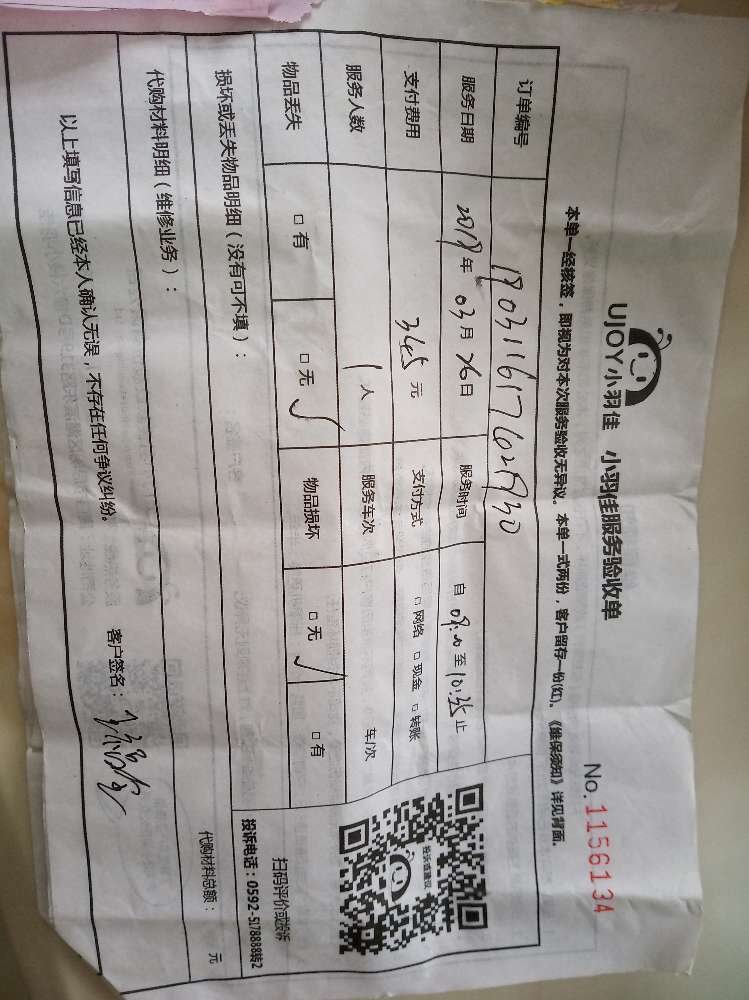 UJOY小羽佳 小羽佳服务验收单
No.1156134
本单一经核签，即视为对本次服务验收无异议。本单一式两份，客户留存一份(红)。《维保须知》详见背面。
订单编号
服务日期 2019年03月26日 服务时间 自 09:20 至 10:35 止
支付费用 345元 支付方式 □网络 □现金 □转账
服务人数 1人 服务车次 车/次
物品丢失 □有 □无 ✓ 物品损坏 □无 ✓ □有
投诉或建议
扫码评价或投诉
投诉电话：0592-5178888转2
损坏或丢失物品明细（没有可不填）：
代购材料明细（维修业务）：
代购材料总额： 元
以上填写信息已经本人确认无误，不存在任何争议纠纷。
客户签名：